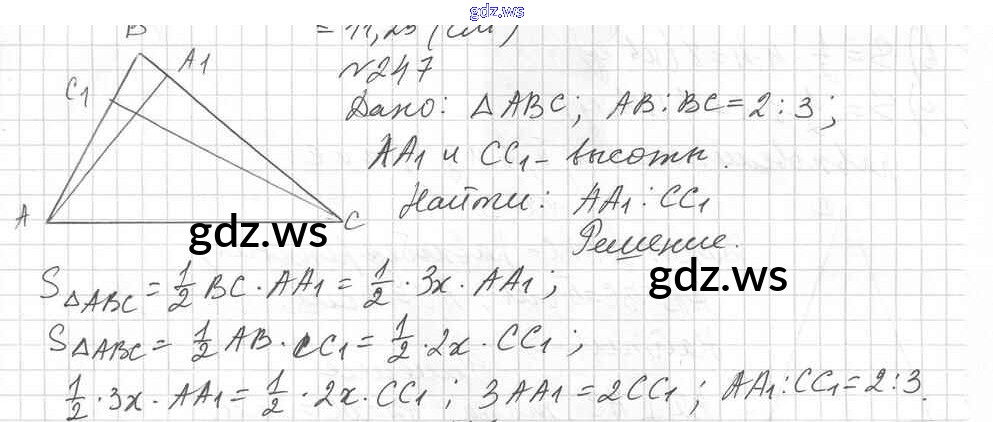 gdz.ws
= 11,25 (см)
№247
B
A1
C1
Дано: △ABC; AB:BC=2:3;
AA1 и CC1- высоты.
Найти: AA1:CC1
A
C
gdz.ws
Решение.
gdz.ws
S△ABC = 1/2 BC · AA1 = 1/2 · 3x · AA1;
S△ABC = 1/2 AB · CC1 = 1/2 · 2x · CC1;
1/2 · 3x · AA1 = 1/2 · 2x · CC1; 3AA1 = 2CC1; AA1:CC1=2:3.